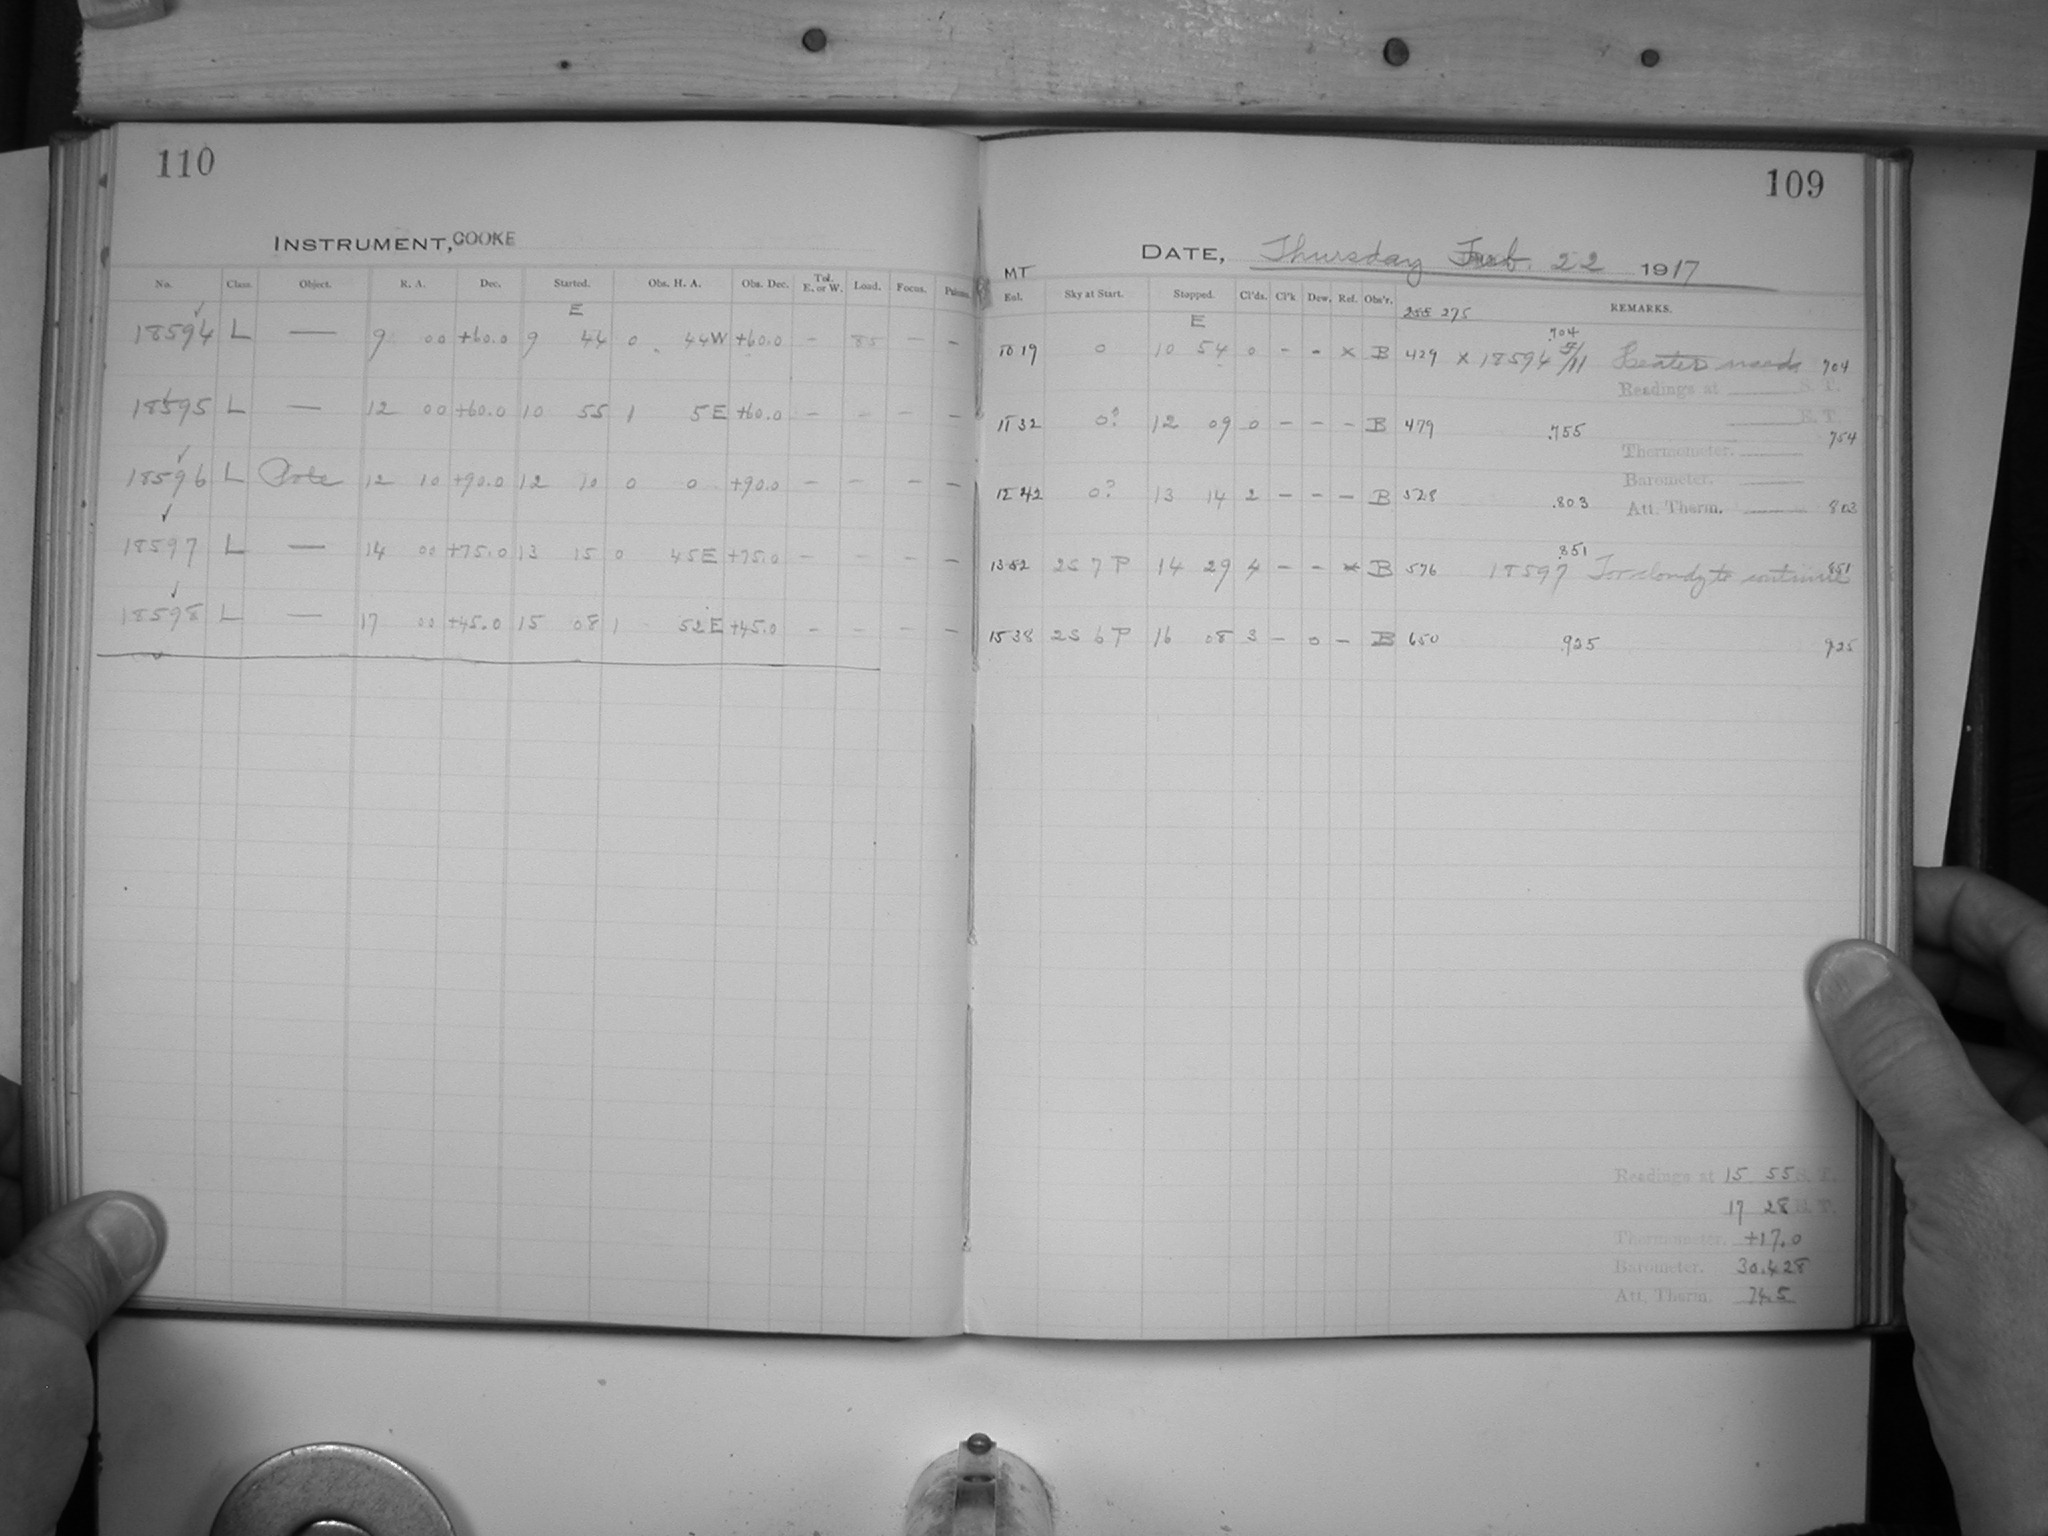 110
INSTRUMENT, COOKE
No. Class. Object. R. A. Dec. Started. Obs. H. A. Obs. Dec. Tel. E. or W. Load. Focus.
E
18594 L — 9 00 +60.0 9 44 0 44W +60.0 – 85 – –
18595 L — 12 00 +60.0 10 55 1 5E +60.0 – – – –
18596 L Pole 12 10 +90.0 12 10 0 0 +90.0 – – – –
18597 L — 14 00 +75.0 13 15 0 45E +75.0 – – – –
18598 L — 17 00 +45.0 15 08 1 52E +45.0 – – – –
109
DATE, Thursday Feb. 22 1917
MT
Sky at Start. Stopped. Cl'ds. Cl'k Dew. Ref. Obs'r. 275 REMARKS.
E
.704
10 19 0 10 54 0 – – x B 429 x 18594 704
Readings at S. T.
11 32 0? 12 09 0 – – – B 479 .755 754
Thermometer.
Barometer.
12 42 0? 13 14 2 – – – B 528 .803 803
Att. Therm.
.851
13 52 2S 7 P 14 29 4 – – x B 576 18597 Too cloudy to continue 851
15 38 2S 6 P 16 08 3 – 0 – B 650 .925 925
Readings at 15 55 S. T.
17 28 E. T.
Thermometer. +17.0
Barometer. 30.428
Att. Therm. 74.5